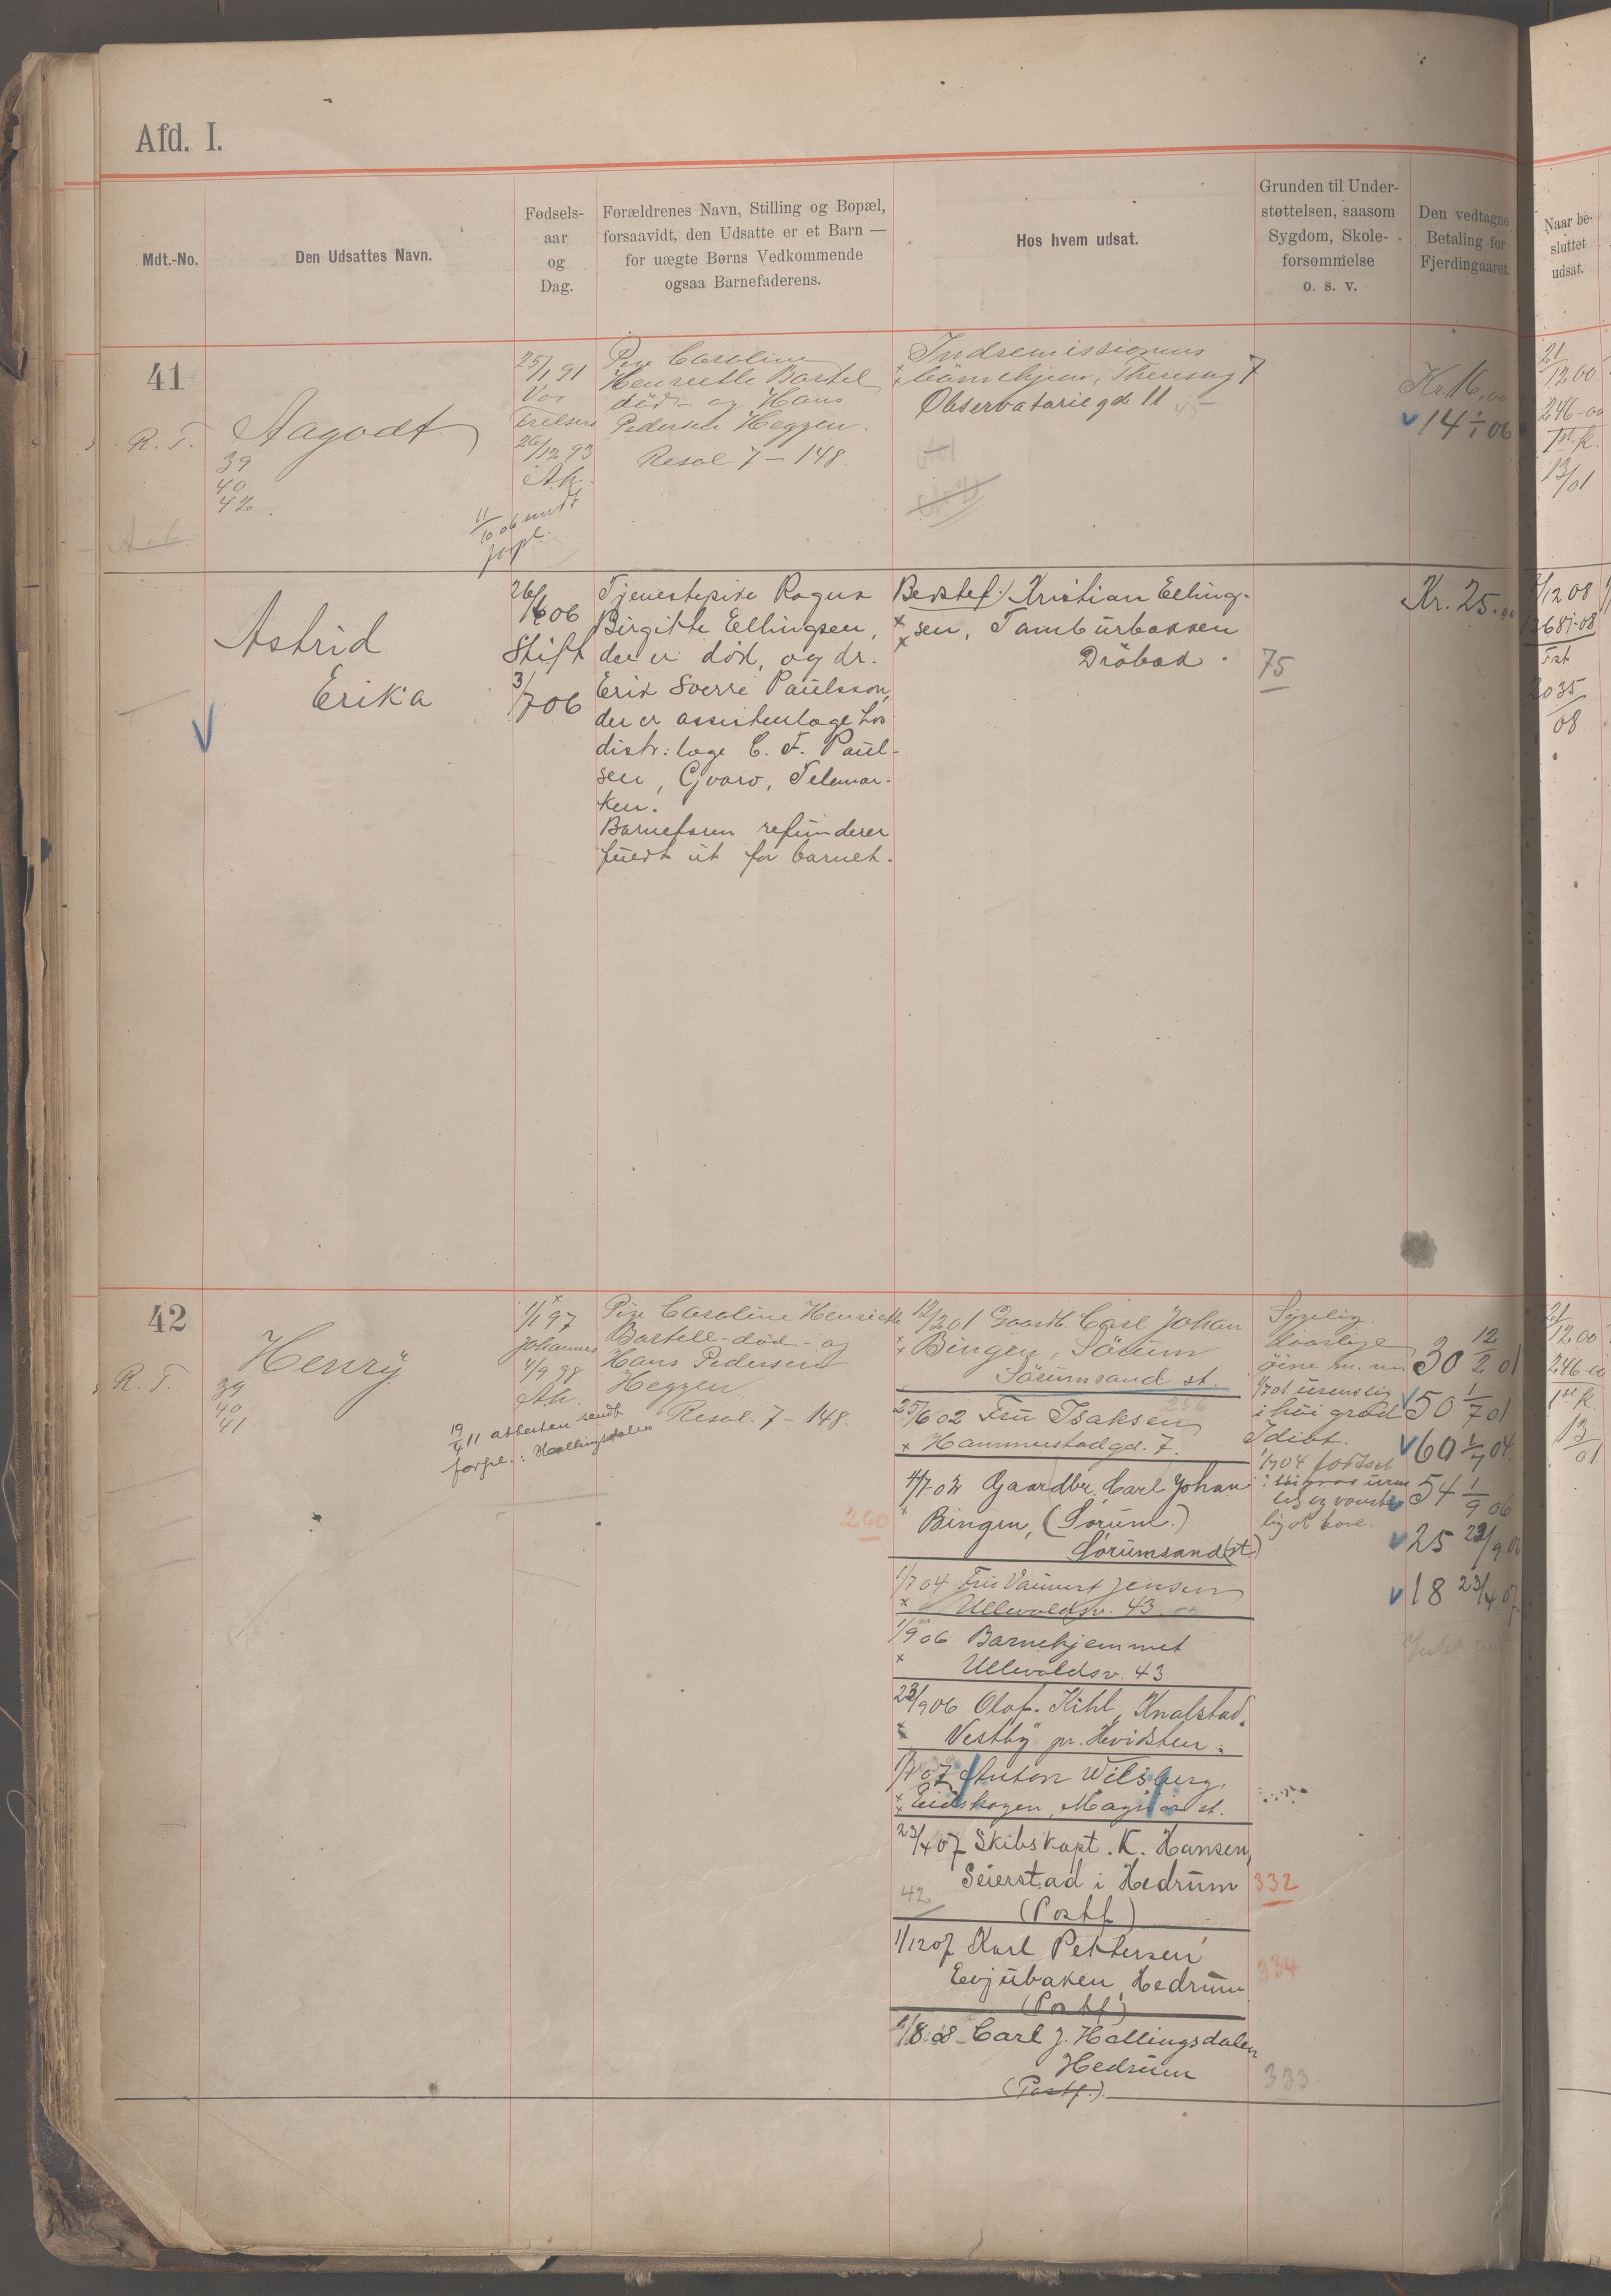 Afd. I.
Mdt.-No.
Den Udsattes Navn.
Fødsels-
aar
og
Dag.
Forældrenes Navn, Stilling og Bopæl,
forsaavidt, den Udsatte er et Barn —
for uægte Børns Vedkommende
ogsaa Barnefaderens.
Hos hvem udsat.
Grunden til Under-
støttelsen, saasom
Sygdom, Skole-
forsømmelse
o. s. v.
Den vedtagne
Betaling for
Fjerdingaaret.
Naar be-
sluttet
udsat.
41
R. T.
Aagodt
39
40
42.
25/1 91
Vor
Frelsers
26/12 93
Ak.
11/10 06 mndt
forpl.
Pige Caroline
Henriette Bartel
død - og Hans
Pedersen Heggen.
Resol 7 - 148.
Indremissionens
barnehjem, Theresesg 7
Observatoriegd 11
Kr. 16,00
14 1/1 06
21/12 00
246-00
1st. k.
13/01
Astrid
Erika
26/1 06
Stift
3/7 06
Tjenestepike Ragna
Birgitte Ellingsen,
der er død, og dr.
Erik Sverre Paulsson,
der er assistentlæge hos
distr: læge C. F. Paul-
sen, Gvarv, Telemar-
ken.
Barnefaren refunderer
fuldt ut for barnet.
Bedstef. Kristian Elling-
sen, Tamburbakken
Drøbak.
75
Kr. 25.00
/12 08
3687-08
Fst
2035/08
42
R. T.
Henry
39
40
41
1/1 97
Johannes
4/9 98
Ak.
19/4 11 attesten sendt
forpl.: Hallingsdalen
Pige Caroline Henriette
Bartell - død - og
Hans Pedersen
Heggen
Resol. 7 - 148.
12/2 01 Gaardb. Carl Johan
Bingen, Sørum
Sørumsand st.
256
25/6 02 Fru Isaksen
Hammerstadgd. 7.
4/7 02 Gaardbr. Carl Johan
Bingen, (Sørum.)
Sørumsand (st.)
260
1/7 04 Fru Vauvert Jensen
Ullevoldsv. 43
1/9 06 Barnehjemmet
Ullevoldsv. 43
23/9 06 Olaf Kihl, Knalstad,
Vestby pr. Hvidsten.
1/1 07 Anton Wilsberg,
Eidskogen, Magnor st.
23/4 07 Skibskapt. K. Hansen,
Seierstad i Hedrum
(Postf.)
42
332
1/12 07 Karl Pettersen
Evjubaken, Hedrum
(Postf.)
334
1/8 08 Carl J. Hallingsdalen
Hedrum
(Postf.)
333
Sygelig
daarlige
øine
1/7 01 urenslig
i høi grad
Idiot.
1/7 04 fortsat
30 12/2 01
50 1/7 01
60 1/7 04.
54 1/9 06
25 23/9 06
18 23/4 07
21/12 00
246-00
1st k.
13/01